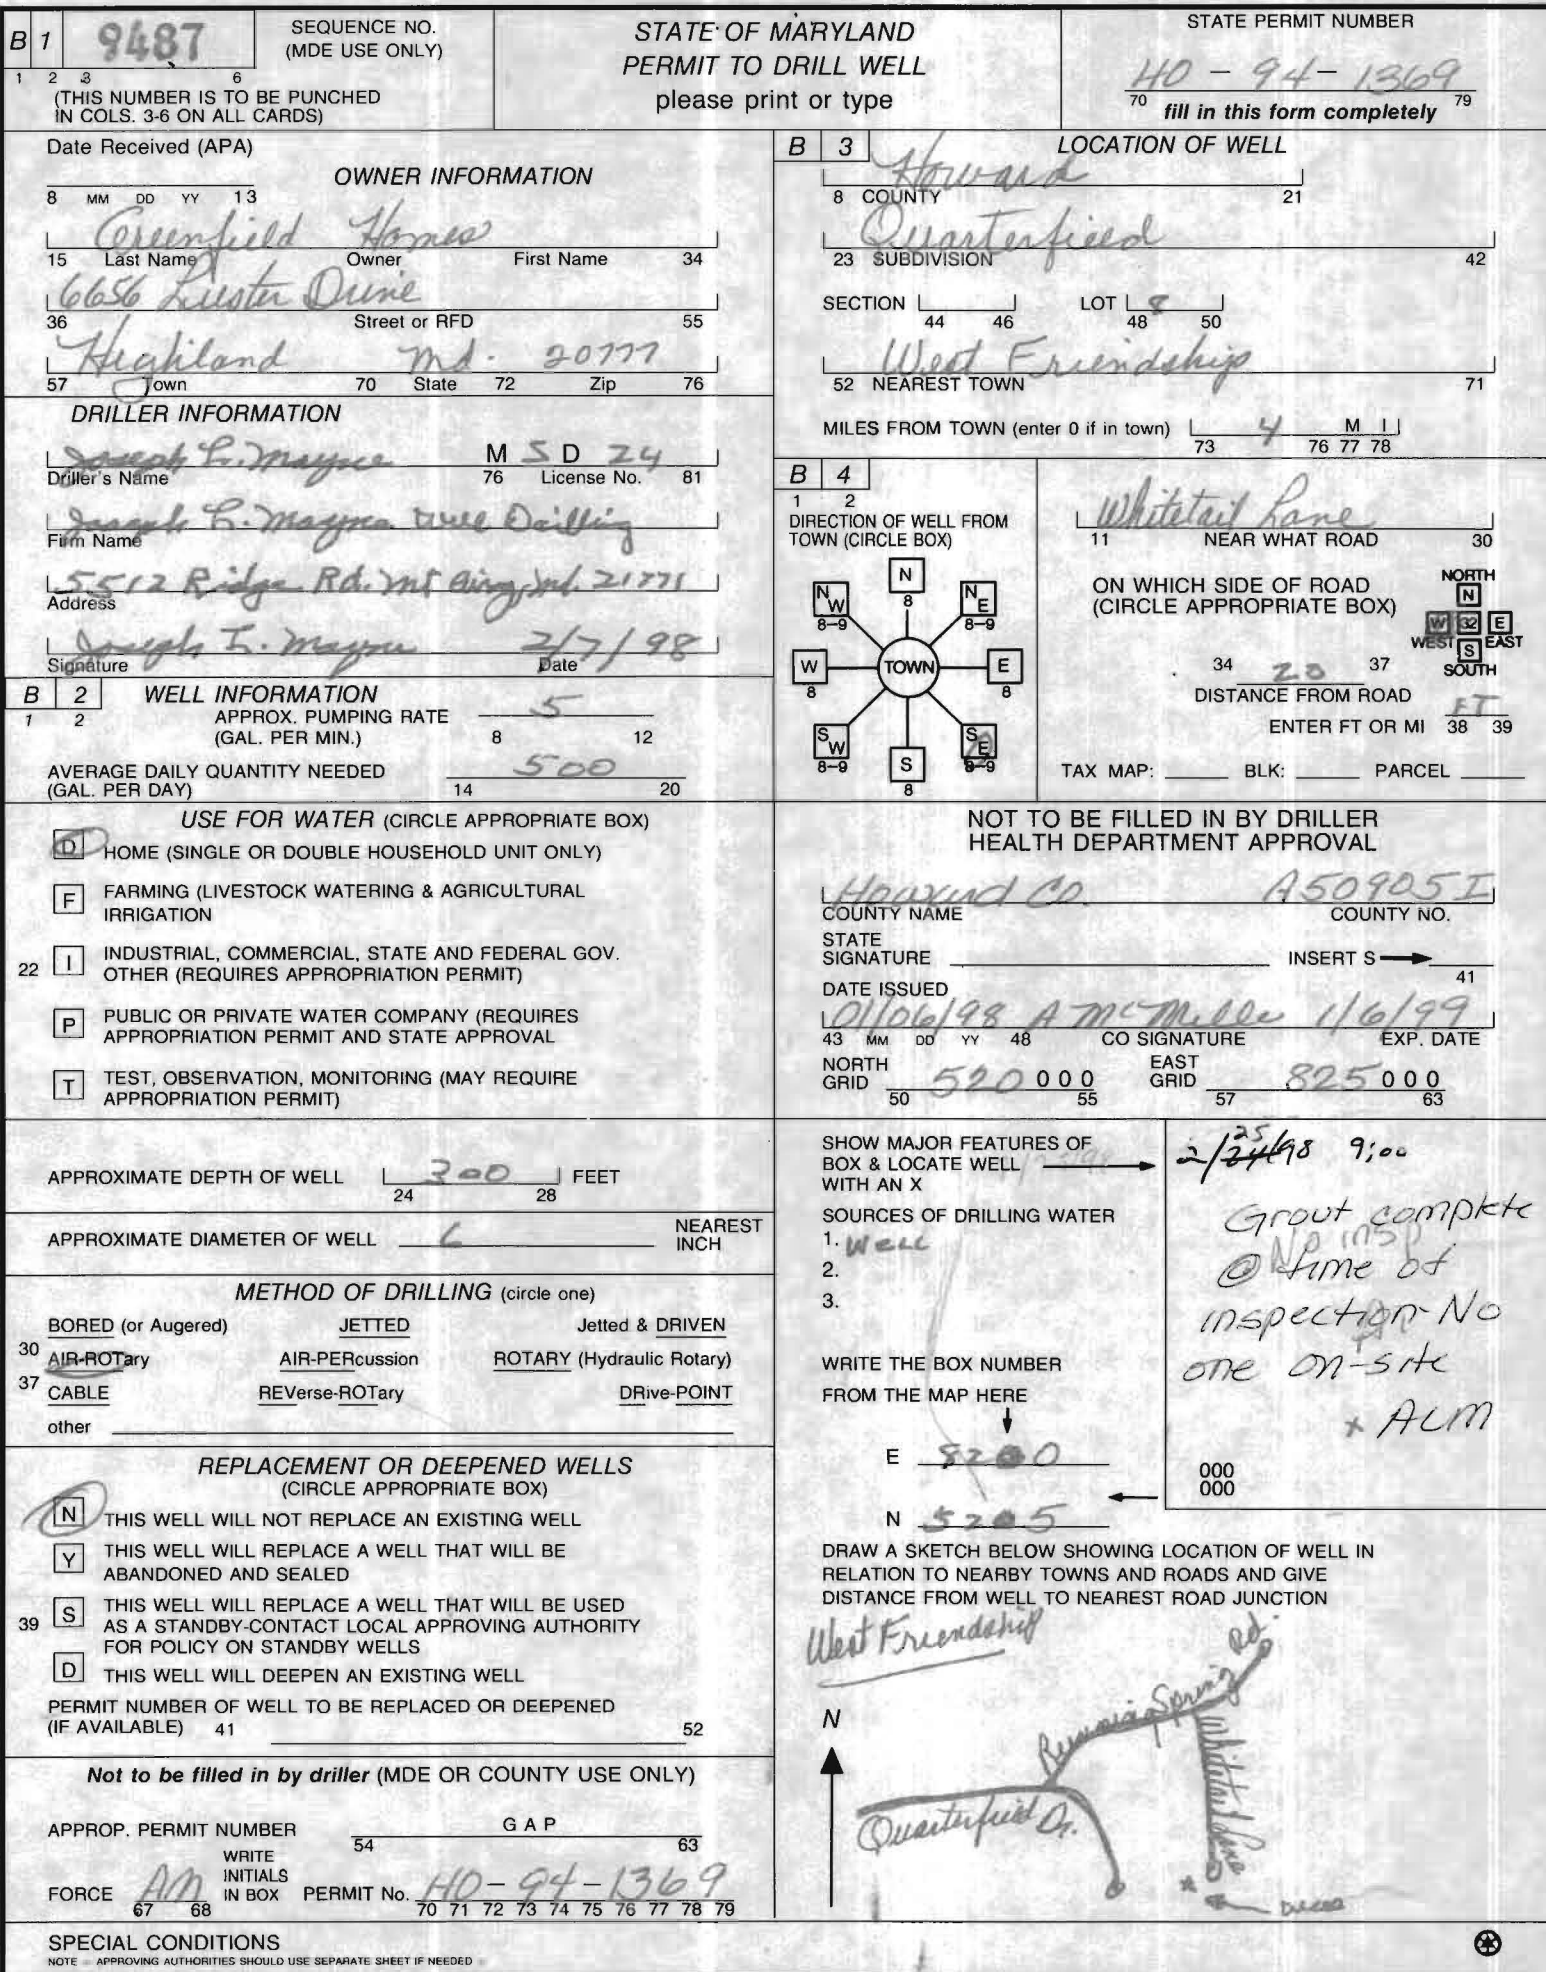 B 1 9487 SEQUENCE NO. (MDE USE ONLY)
1 2 3 6
(THIS NUMBER IS TO BE PUNCHED
IN COLS. 3-6 ON ALL CARDS)
STATE OF MARYLAND
PERMIT TO DRILL WELL
please print or type
STATE PERMIT NUMBER
HO - 94 - 1369
70 79
fill in this form completely
Date Received (APA)
OWNER INFORMATION
8 MM DD YY 13
Greenfield Homes
15 Last Name Owner First Name 34
6656 Drive
36 Street or RFD 55
Highland Md. 20777
57 Town 70 State 72 Zip 76
DRILLER INFORMATION
Joseph L. Mayne M S D 24
Driller's Name 76 License No. 81
Joseph L. Mayne Well Drilling
Firm Name
5512 Ridge Rd. Mt Airy, Md. 21771
Address
Joseph L. Mayne 2/7/98
Signature Date
B 2 WELL INFORMATION
1 2
APPROX. PUMPING RATE 5
(GAL. PER MIN.) 8 12
AVERAGE DAILY QUANTITY NEEDED 500
(GAL. PER DAY) 14 20
USE FOR WATER (CIRCLE APPROPRIATE BOX)
D HOME (SINGLE OR DOUBLE HOUSEHOLD UNIT ONLY)
F FARMING (LIVESTOCK WATERING & AGRICULTURAL
IRRIGATION
22 I INDUSTRIAL, COMMERCIAL, STATE AND FEDERAL GOV.
OTHER (REQUIRES APPROPRIATION PERMIT)
P PUBLIC OR PRIVATE WATER COMPANY (REQUIRES
APPROPRIATION PERMIT AND STATE APPROVAL
T TEST, OBSERVATION, MONITORING (MAY REQUIRE
APPROPRIATION PERMIT)
APPROXIMATE DEPTH OF WELL 300 FEET
24 28
APPROXIMATE DIAMETER OF WELL 6 NEAREST
INCH
METHOD OF DRILLING (circle one)
BORED (or Augered) JETTED Jetted & DRIVEN
30 AIR-ROTary AIR-PERcussion ROTARY (Hydraulic Rotary)
37 CABLE REVerse-ROTary DRive-POINT
other
REPLACEMENT OR DEEPENED WELLS
(CIRCLE APPROPRIATE BOX)
N THIS WELL WILL NOT REPLACE AN EXISTING WELL
Y THIS WELL WILL REPLACE A WELL THAT WILL BE
ABANDONED AND SEALED
39 S THIS WELL WILL REPLACE A WELL THAT WILL BE USED
AS A STANDBY-CONTACT LOCAL APPROVING AUTHORITY
FOR POLICY ON STANDBY WELLS
D THIS WELL WILL DEEPEN AN EXISTING WELL
PERMIT NUMBER OF WELL TO BE REPLACED OR DEEPENED
(IF AVAILABLE) 41 52
Not to be filled in by driller (MDE OR COUNTY USE ONLY)
APPROP. PERMIT NUMBER G A P
54 63
FORCE AM WRITE INITIALS IN BOX PERMIT No. HO-94-1369
67 68 70 71 72 73 74 75 76 77 78 79
SPECIAL CONDITIONS
NOTE APPROVING AUTHORITIES SHOULD USE SEPARATE SHEET IF NEEDED
B 3 LOCATION OF WELL
Howard
8 COUNTY 21
Quarterfield
23 SUBDIVISION 42
SECTION LOT 8
44 46 48 50
West Friendship
52 NEAREST TOWN 71
MILES FROM TOWN (enter 0 if in town) 4 M I
73 76 77 78
B 4
1 2
DIRECTION OF WELL FROM
TOWN (CIRCLE BOX)
N
8
NW NE
8-9 8-9
W TOWN E
8 8
SW SE
8-9 8-9
S
8
Whitetail Lane
11 NEAR WHAT ROAD 30
ON WHICH SIDE OF ROAD
(CIRCLE APPROPRIATE BOX)
NORTH
N
W 32 E
WEST S EAST
SOUTH
34 20 37
DISTANCE FROM ROAD
ENTER FT OR MI FT
38 39
TAX MAP: BLK: PARCEL
NOT TO BE FILLED IN BY DRILLER
HEALTH DEPARTMENT APPROVAL
Howard Co. A50905I
COUNTY NAME COUNTY NO.
STATE
SIGNATURE INSERT S
41
DATE ISSUED
01/06/98 A McMille 1/6/99
43 MM DD YY 48 CO SIGNATURE EXP. DATE
NORTH GRID 520 000 EAST GRID 825 000
50 55 57 63
SHOW MAJOR FEATURES OF
BOX & LOCATE WELL
WITH AN X
SOURCES OF DRILLING WATER
1. Well
2.
3.
WRITE THE BOX NUMBER
FROM THE MAP HERE
E 8200
N 5205
25
2/24/98 9:00
Grout complete
No insp
@ time of
inspection-No
one on-site
x ALM
000
000
DRAW A SKETCH BELOW SHOWING LOCATION OF WELL IN
RELATION TO NEARBY TOWNS AND ROADS AND GIVE
DISTANCE FROM WELL TO NEAREST ROAD JUNCTION
West Friendship
N
Running Spring Rd.
Whitetail Lane
Quarterfield Dr.